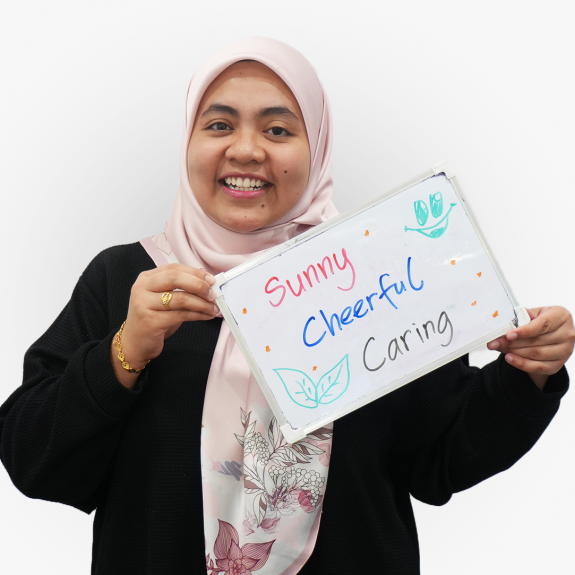 Sunny
Cheerful
Caring